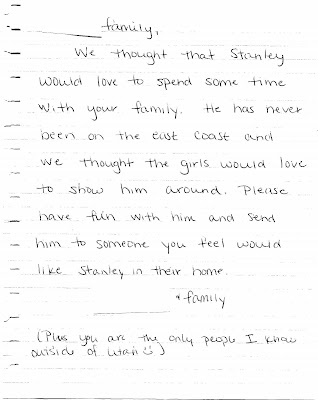 family,
We thought that Stanley
would love to spend some time
with your family. He has never
been on the east coast and
we thought the girls would love
to show him around. Please
have fun with him and send
him to someone you feel would
like Stanley in their home.
+ family
(Plus you are the only people I know
outside of Utah ☺)